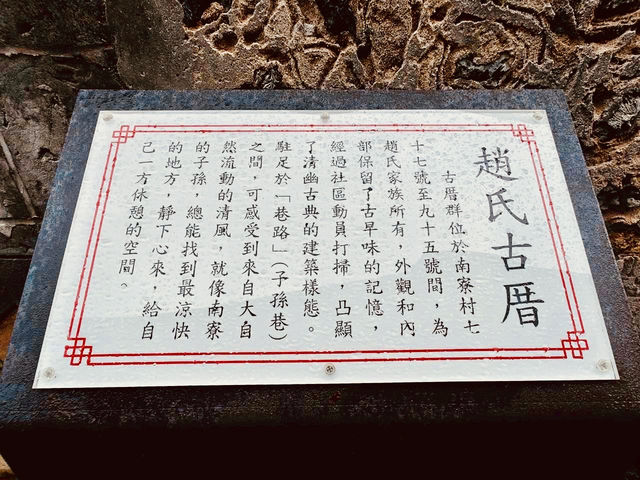 趙氏古厝
古厝群位於南寮村七
十七號至九十五號間，為
趙氏家族所有，外觀和內
部保留了古早味的記憶，
經過社區動員打掃，凸顯
了清幽古典的建築樣態。
駐足於「巷路」(子孫巷)
之間，可感受到來自大自
然流動的清風，就像南寮
的子孫，總能找到最涼快
的地方，靜下心來，給自
己一方休憩的空間。